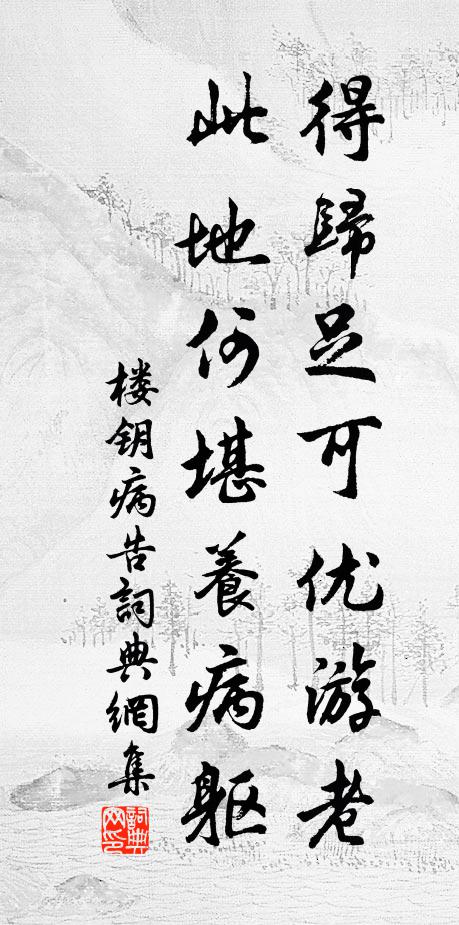 得歸足可优游老
此地何堪養病軀
楼钥病告詞典網集
詞典网印